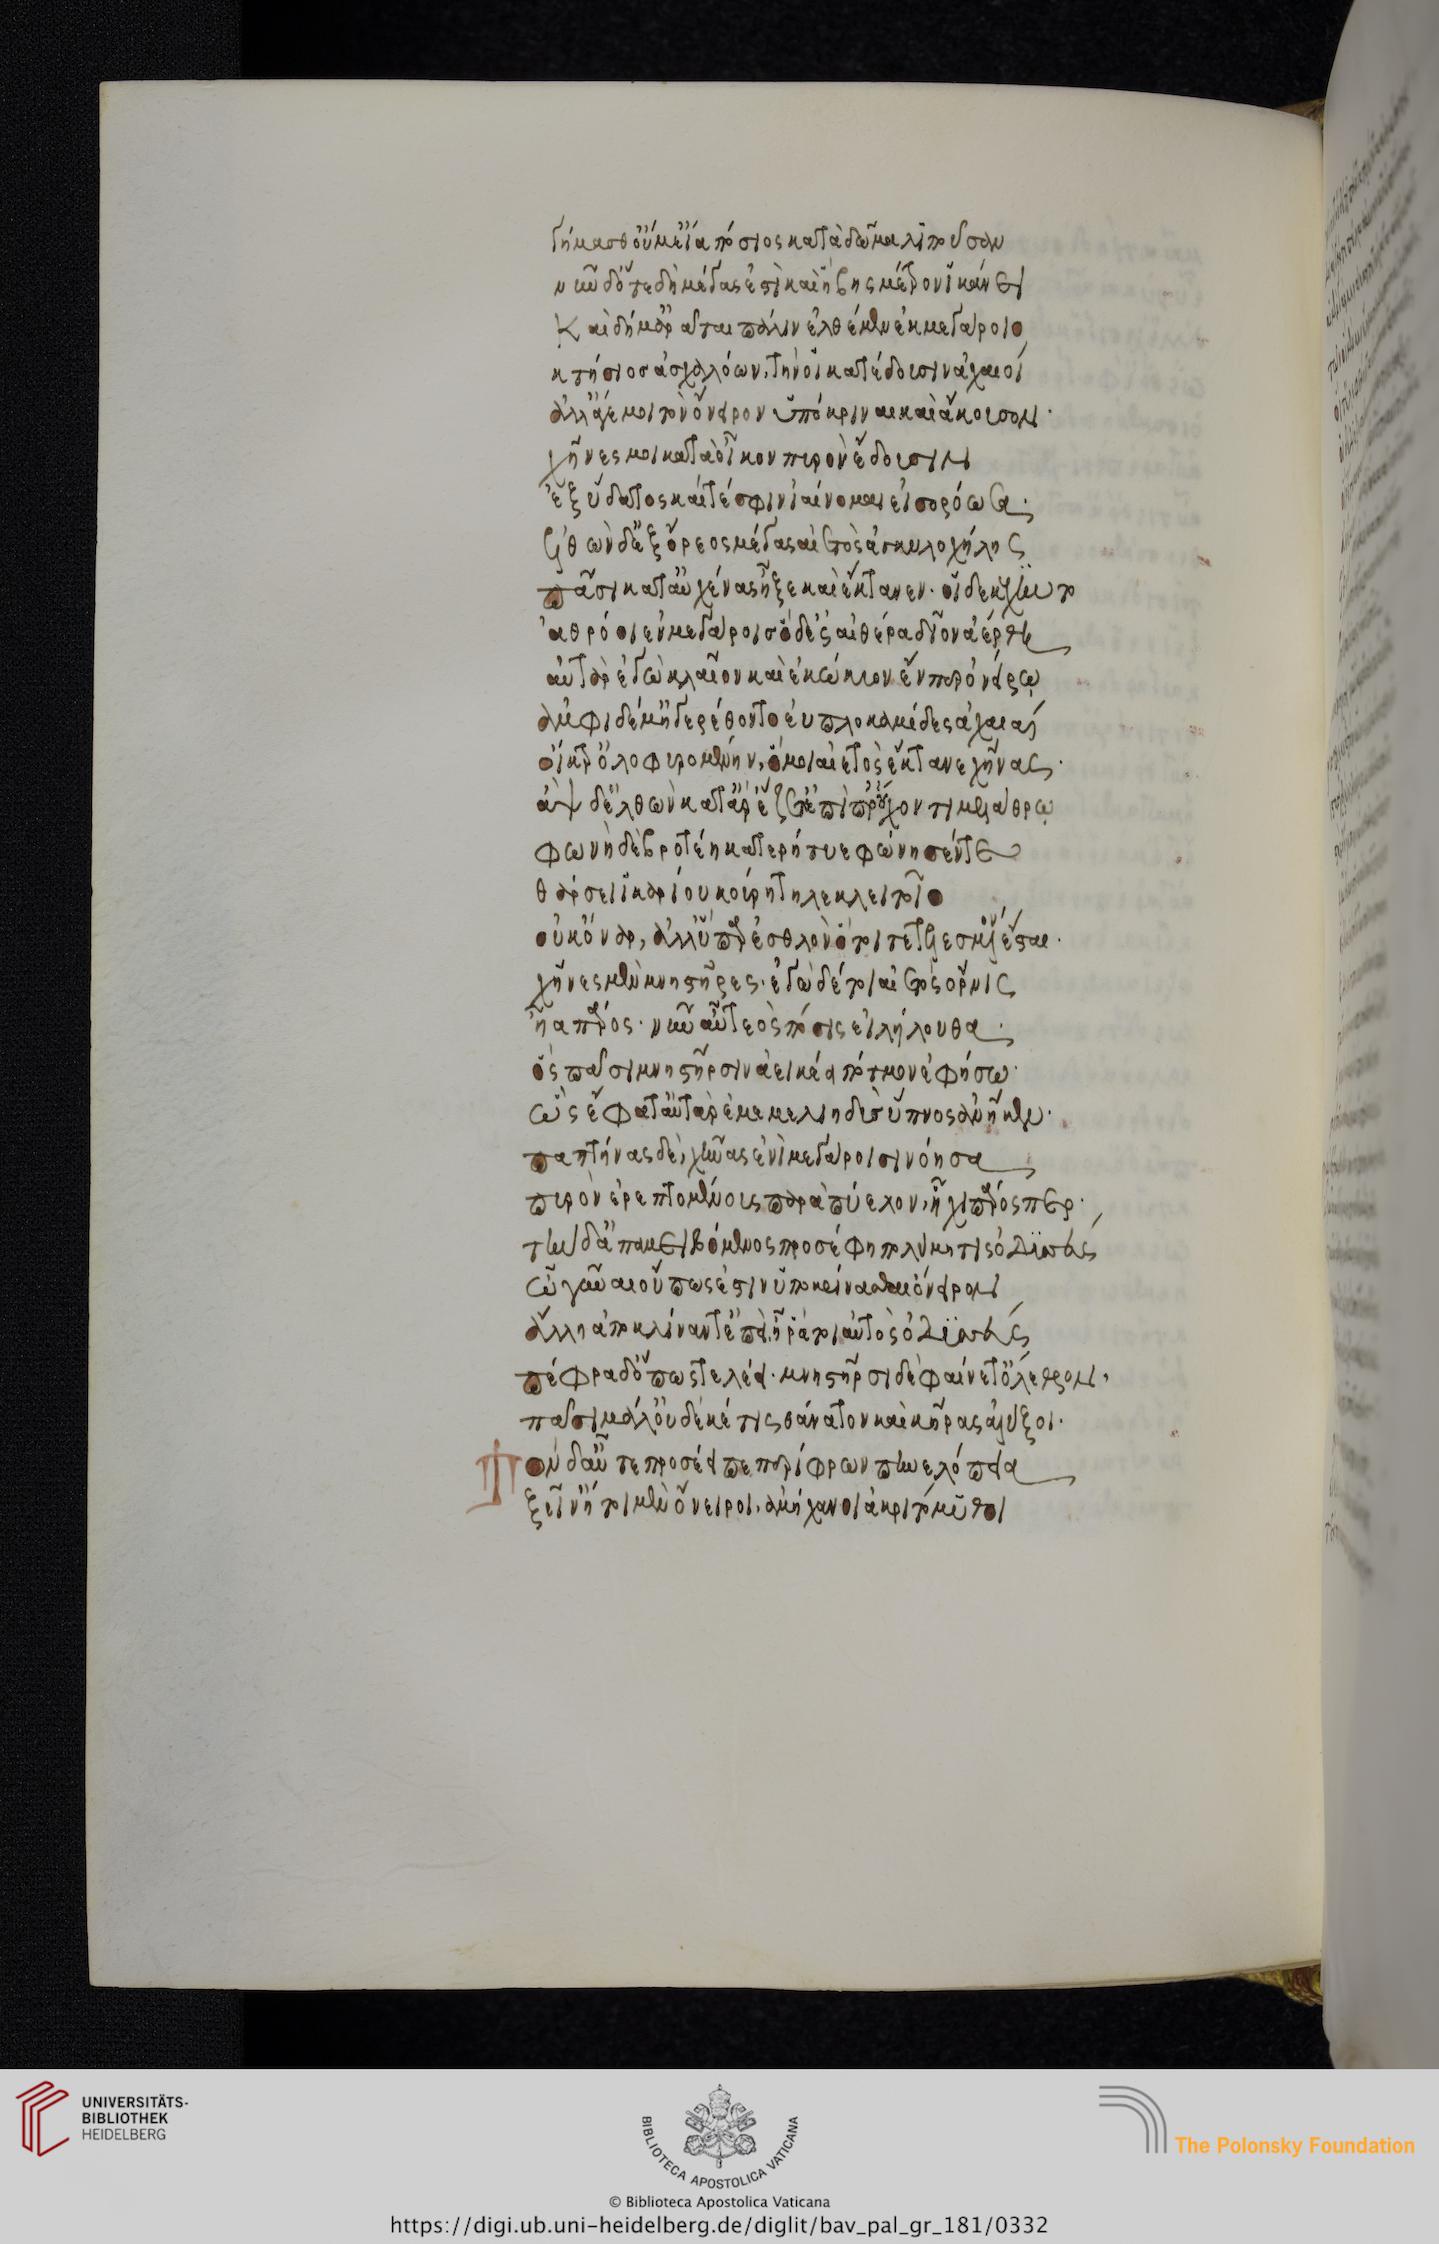 γήμασθ' οὔ μ' εἴα πόσιος κατὰ δῶμα λιποῦσαν
νῦν δ' ὅτε δὴ μέγας ἐστὶ καὶ ἥβης μέτρον ἱκάνει
Καὶ δή μ' ἀρᾶται πάλιν ἐλθέμεν ἐκ μεγάροιο
κτήσιος ἀσχαλόων, τήν οἱ κατέδουσιν ἀχαιοί
ἀλλ' ἄγε μοι τὸν ὄνειρον ὑπόκριναι καὶ ἄκουσον·
χῆνές μοι κατὰ οἶκον πυρὸν ἔδουσιν
ἐξ ὕδατος καί τέ σφιν ἰαίνομαι εἰσορόωσα·
ἐλθὼν δ' ἐξ ὄρεος μέγας αἰετὸς ἀγκυλοχήλης
πᾶσι κατ' αὐχένας ἦξε καὶ ἔκτανεν· οἱ δ' ἐκέχυντο
ἀθρόοι ἐν μεγάροις ὁ δ' ἐς αἰθέρα δῖον ἀέρθη
αὐτὰρ ἐγὼ κλαῖον καὶ ἐκώκυον ἔν περ ὀνείρω
ἀμφὶ δέ μ' ἠγερέθοντο ἐυπλοκαμίδες ἀχαιαί
οἴκτρ' ὀλοφυρομένην, ὅ μοι αἰετὸς ἔκτανε χῆνας·
ἂψ δ' ἐλθὼν κατ' ἄρ' ἕζετ' ἐπὶ προὔχοντι μελάθρω
φωνῆ δὲ βροτέη κατερήτυε φώνησέν τε
θάρσει ἰκαρίου κούρη τηλεκλειτοῖο
οὐκ ὄναρ, ἀλλ' ὕπαρ ἐσθλὸν ὅ τοι τετελεσμένον ἔσται·
χῆνες μὲν μνηστῆρες· ἐγὼ δέ τοι αἰετὸς ὄρνις
ἦα πάρος· νῦν αὖτε τεὸς πόσις εἰλήλουθα·
ὃς πᾶσι μνηστῆρσιν ἀεικέα πότμον ἐφήσω·
ὣς ἔφατ' αὐτὰρ ἐμὲ μελιηδὴς ὕπνος ἀνῆκεν·
παπτήνας δὲ, χῆνας ἐνὶ μεγάροισι νόησα
πυρὸν ἐρεπτομένους παρὰ πύελον, ἧχι πάρος περ·
τὴν δ' ἀπαμειβόμενος προσέφη πολύμητις ὀδυσσεύς
ὦ γύναι οὔπως ἔστιν ὑποκρίνασθαι ὄνειρον
ἄλλη ἀποκλίναντ' ἐπειῆ ῥά τοι αὐτὸς ὀδυσσεύς
πέφραδ' ὅπως τελέει· μνηστῆρσι δὲ φαίνετ' ὄλεθρον,
πᾶσι μάλ' οὐδέ κέ τις θάνατον καὶ κῆρας ἀλύξοι·
Τὸν δ' αὖτε προσέειπε περίφρων πηνελόπεια
ξεῖν' ἤτοι μὲν ὄνειροι, ἀμήχανοι ἀκριτόμυθοι
UNIVERSITÄTS-
BIBLIOTHEK
HEIDELBERG
BIBLIOTECA APOSTOLICA VATICANA
The Polonsky Foundation
© Biblioteca Apostolica Vaticana
https://digi.ub.uni-heidelberg.de/diglit/bav_pal_gr_181/0332